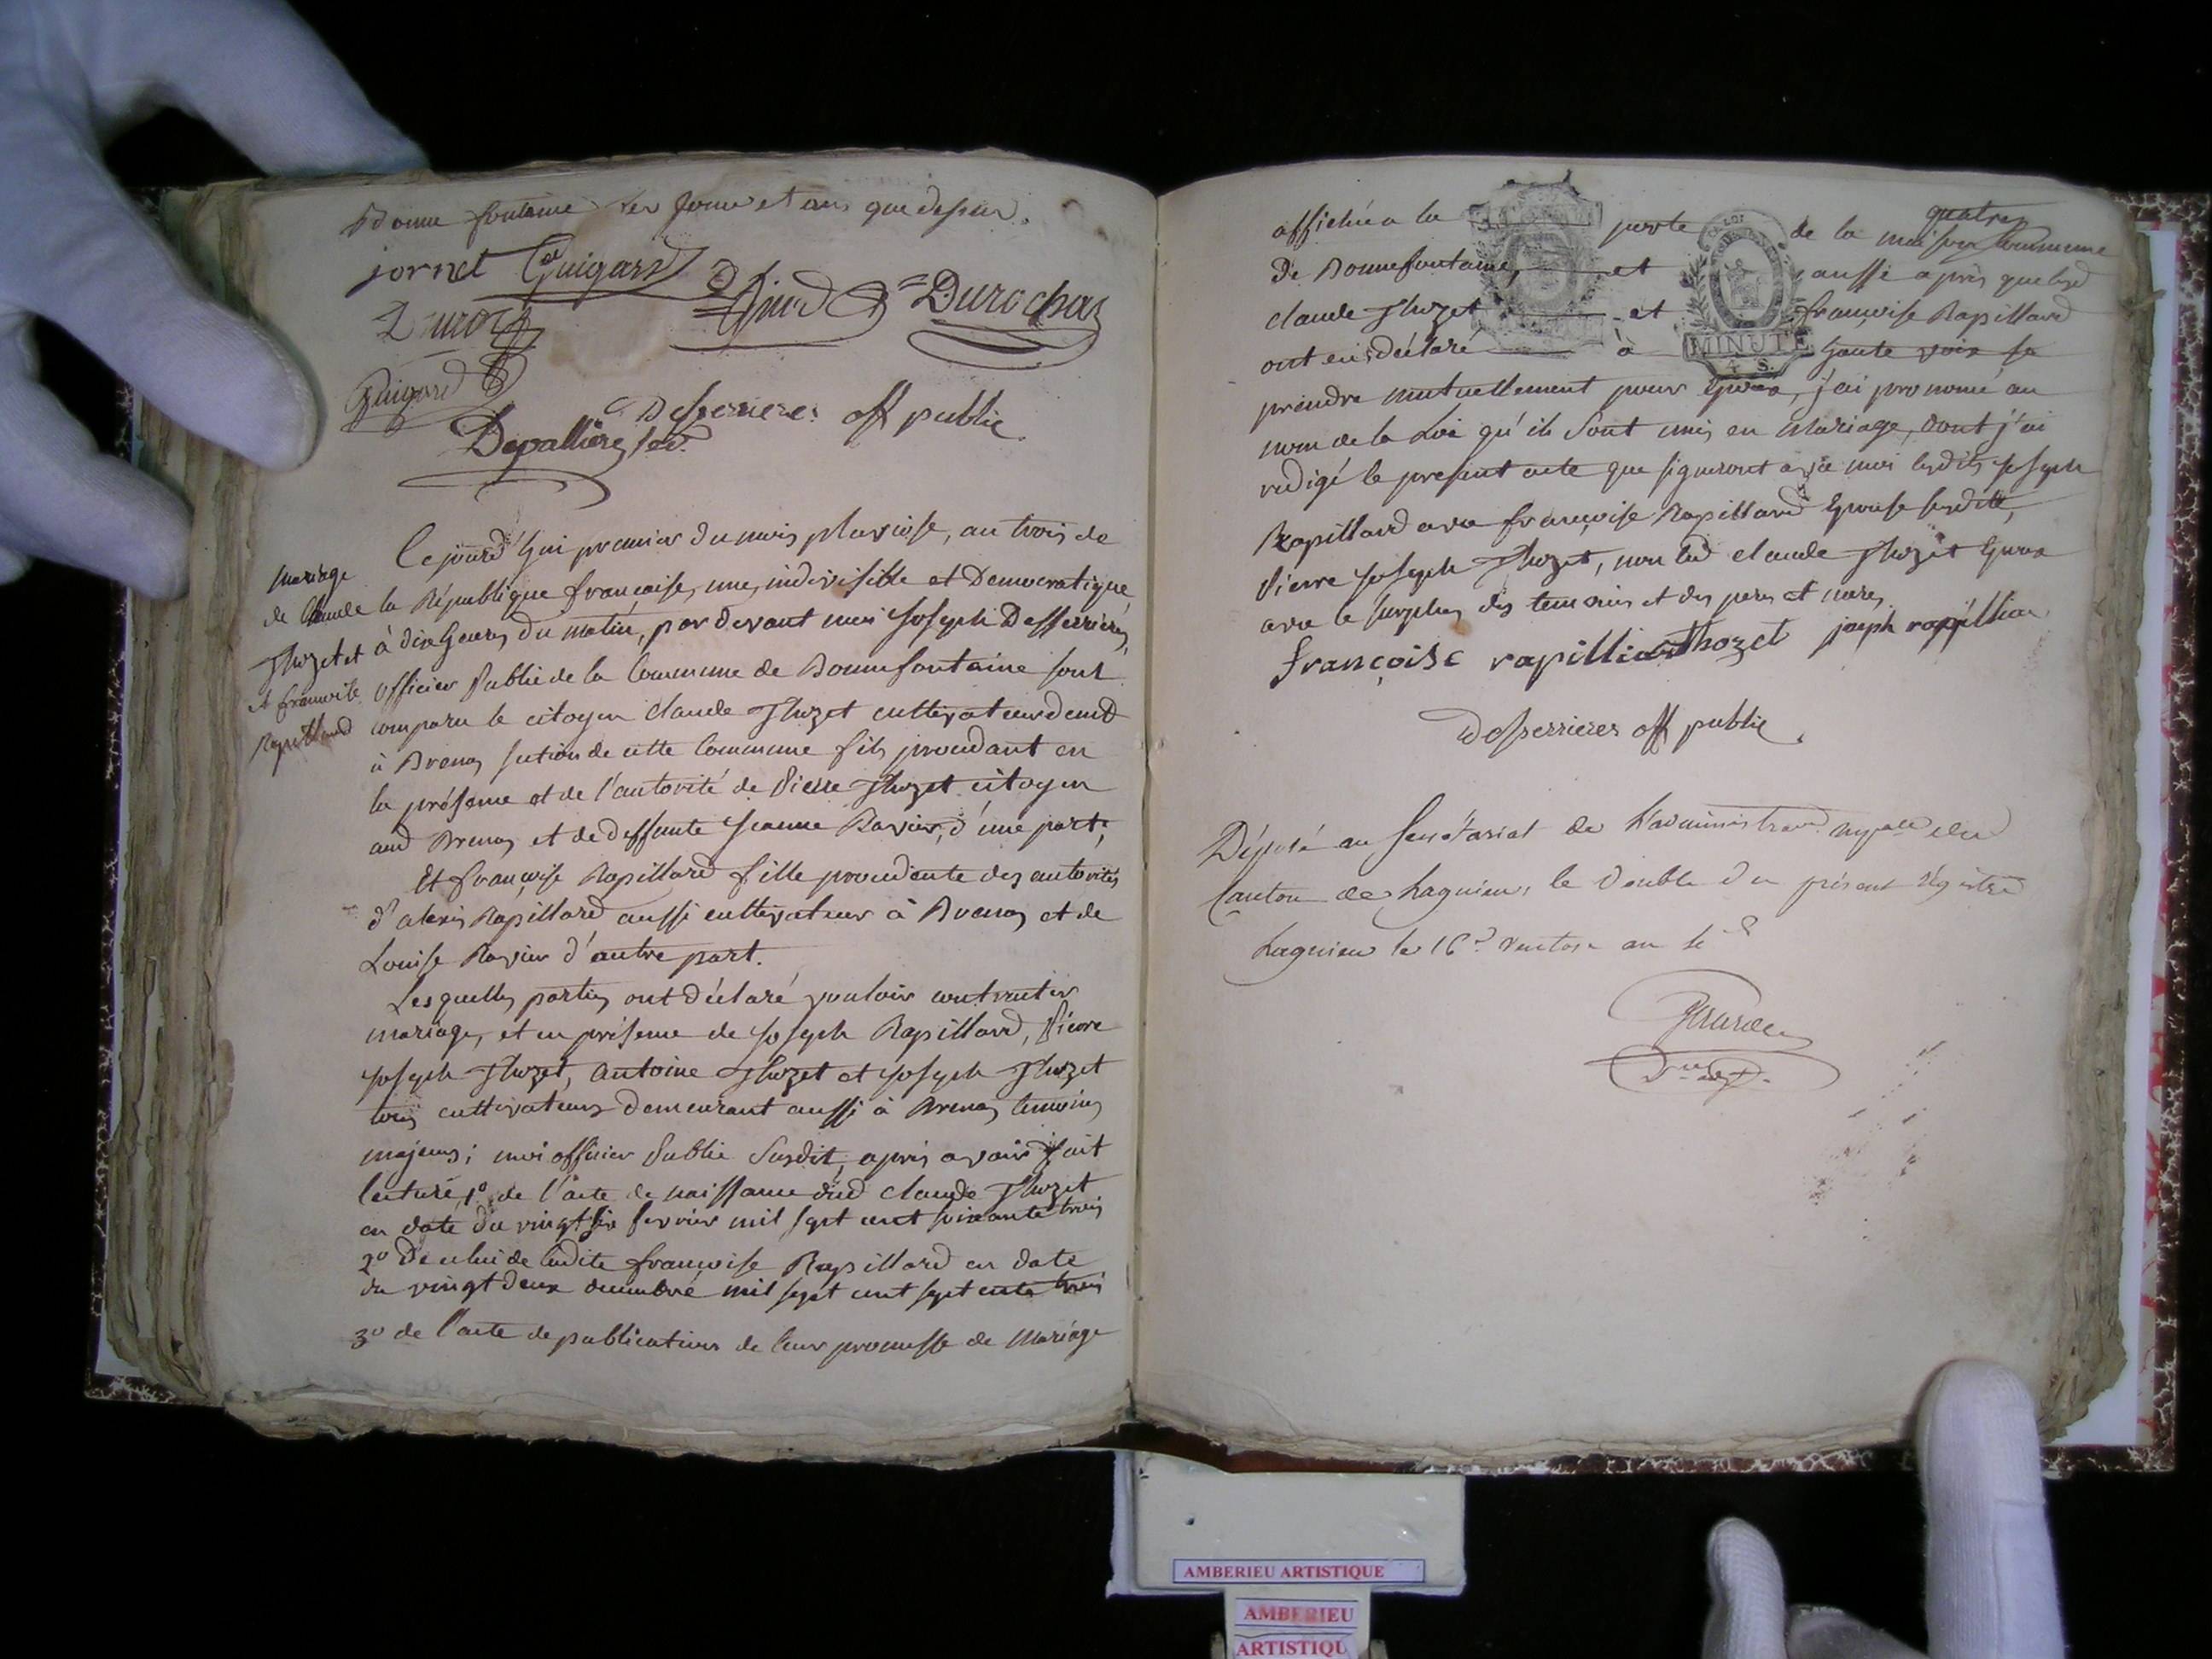 Bonne fontaine les jour et an que dessus.
jornet Guigard Durochat
Guigard
Desserrieres off public
Depallière sec.
Mariage
de Claude
Thozet et
et francoise
Rapillard
Cejourd'hui premier du mois pluviose, an trois de
la République française, une, indivisible et Democratique
à dix heures du matin, par devant moi Joseph Desserrieres,
officier Public de la Commune de Bonnefontaine sont
comparu le citoyen claude Thozet cultivateur demt
à Brenas section de cette Commune fils procédant en
la présence et de l'autorité de Pierre Thozet citoyen
aud Brenas et de deffunte Jeanne Ravier, d'une part,
Et françoise Rapillard fille procedente des autorités
d'alexis Rapillard aussi cultivateur à Brenas et de
Louise Ravier d'autre part.
Lesquelles parties ont déclaré vouloir contracter
mariage, et en présence de Joseph Rapillard, Pierre
Joseph Thozet, Antoine Thozet et Joseph Thozet
tous cultivateurs demeurant aussi à Brenas temoins
majeurs; moi officier Public Susdit, après avoir fait
lecture, 1º de l'acte de naissance dud claude Thozet
en date du vingt six fevrier mil sept cent soixante trois
2º De celui de ladite francoise Rapillard en date
du vingt deux decembre mil sept cent septente trois
3º de l'acte de publications de leur promesse de Mariage
quatre
affichée a la porte de la maison Commune
De Bonnefontaine, et aussi après que lesd
claude Thozet et françoise Rapillard
ont eu déclaré à haute voix se
MINUTE
prendre mutuellement pour Epoux, j'ai prononcé au
nom de la Loi qu'ils sont unis en Mariage, dont j'ai
redigé le present acte que signeront avec moi lesdits Joseph
Rapillard avec françoise Rapillard Epouse susdite,
Pierre Joseph Thozet, non led claude Thozet Epoux
avec le surplus des temoins et des peres et meres
françoise rapilliard Thozet joseph rapilliar
Desserrieres off public.
Déposé au Secrétariat de L'administraon mpale du
Canton de Lagnieu, le Double du présent régistre
Lagnieu le 16e ventose an
AMBERIEU ARTISTIQUE
AMBERIEU
ARTISTIQU